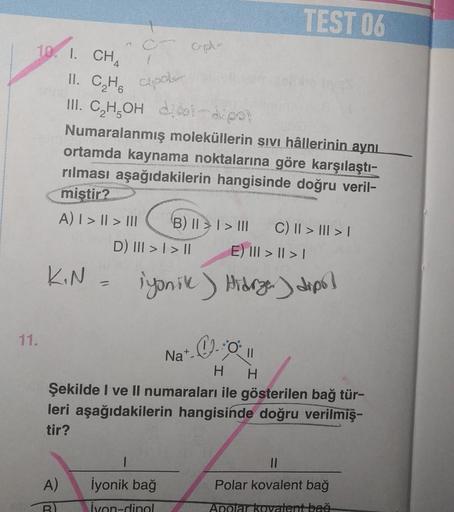 TEST 06
10. I. CH₄ apolar
II. C₂H₆ apolar
III. C₂H₅OH dipol-dipol
Numaralanmış moleküllerin sıvı hâllerinin aynı
ortamda kaynama noktalarına göre karşılaştı-
rılması aşağıdakilerin hangisinde doğru veril-
miştir?
A) I > II > III B) II > I > III C) II > III > I
D) III > I > II E) III > II > I
K.N = iyonik > Hidrojen > dipol
11.
Na⁺ I O II
H H
Şekilde I ve II numaraları ile gösterilen bağ tür-
leri aşağıdakilerin hangisinde doğru verilmiş-
tir?
I II
A) İyonik bağ Polar kovalent bağ
B) İyon-dipol Apolar kovalent bağ